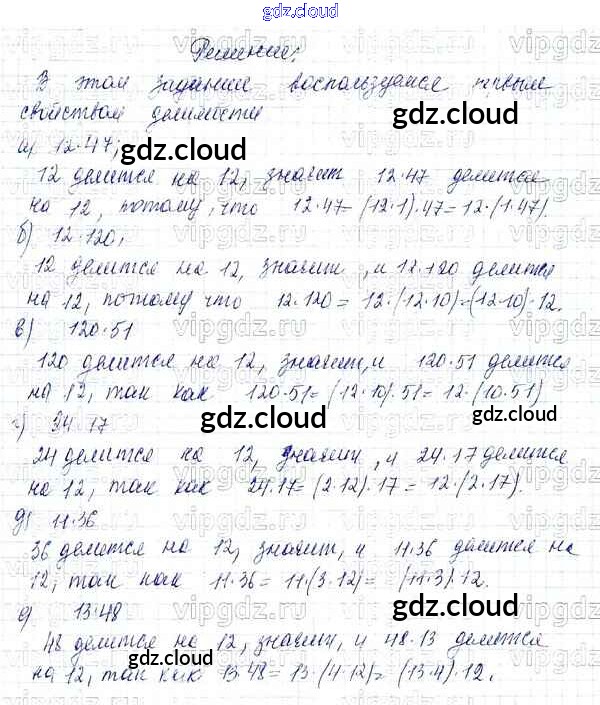 gdz.cloud
Решение:
В этом задании воспользуемся первым
свойством делимости
а) 12·47;
12 делится на 12, значит 12·47 делится
на 12, потому, что 12·47=(12·1)·47=12·(1·47).
б) 12·120;
12 делится на 12, значит, и 12·120 делится
на 12, потому что 12·120 = 12·(12·10)=(12·10)·12.
в) 120·51
120 делится на 12, значит, и 120·51 делится
на 12, так как 120·51=(12·10)·51=12·(10·51)
г) 34·17
24 делится на 12, значит, и 24·17 делится
на 12, так как 24·17=(2·12)·17=12·(2·17).
д) 11·36
36 делится на 12, значит, и 11·36 делится на
12, так как 11·36=11·(3·12)= (11·3)·12.
е) 13·48
48 делится на 12, значит, и 48·13 делится
на 12, так как 13·48=13·(4·12)= (13·4)·12.